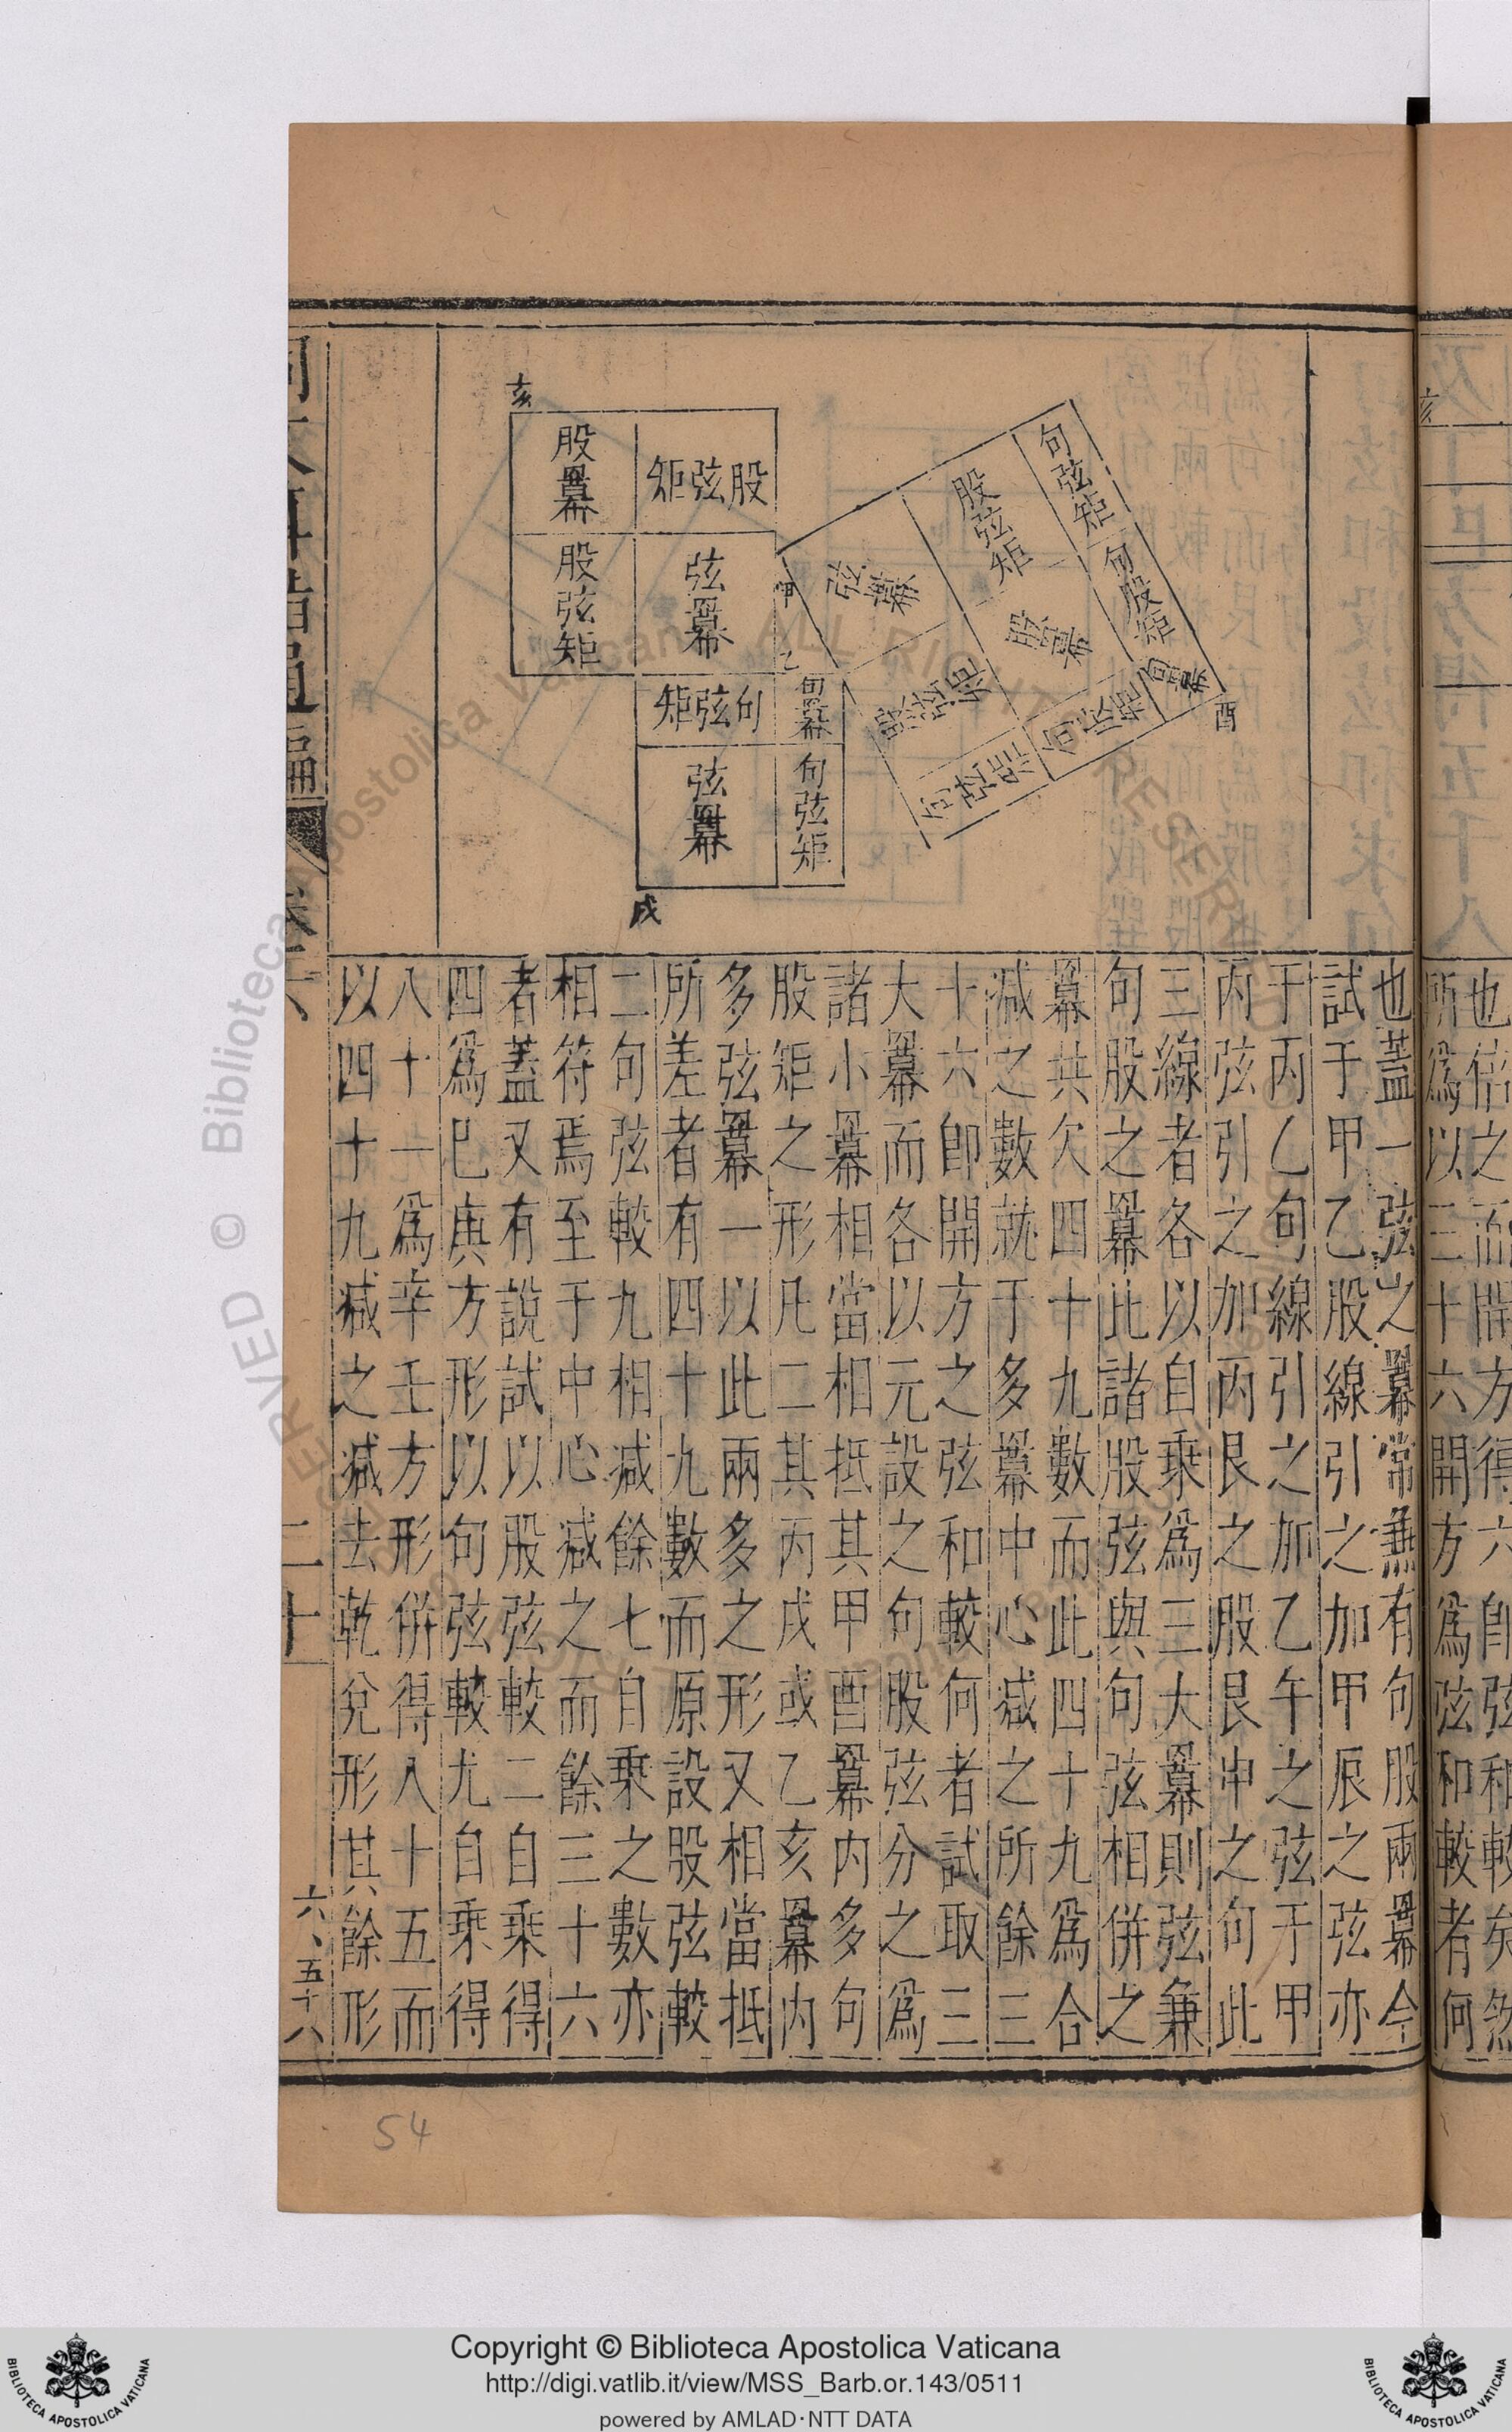 也倍之而開方得六即弦和較矣然
所爲以三十六開方爲弦和較者何
句弦矩
股弦矩
弦冪
句股矩
股冪
股弦矩
句冪
句股矩
句弦矩
酉
甲
乙
亥
股弦矩
股冪
弦冪
股弦矩
句冪
句弦矩
句弦矩
弦冪
戌
也蓋一弦之冪常兼有句股兩冪今
試于甲乙股線引之加甲辰之弦亦
于丙乙句線引之加乙午之弦于甲
丙弦引之加丙艮之股艮申之句此
三線者各以自乘爲三大冪則弦兼
句股之冪此諸股弦與句弦相併之
冪共欠四十九數而此四十九爲合
減之數就于多冪中心減之所餘三
十六即開方之弦和較何者試取三
大冪而各以元設之句股弦分之爲
諸小冪相當相抵其甲酉冪内多句
股矩之形凡二其丙戌或乙亥冪内
多弦冪一以此兩多之形又相當抵
所差者有四十九數而原設股弦較
二句弦較九相減餘七自乘之數亦
相符焉至于中心減之而餘三十六
者蓋又有說試以股弦較二自乘得
四爲巳庚方形以句弦較尤自乘得
八十一爲辛壬方形併得八十五而
以四十九減之減去乾兌形其餘形
同文算指通編 卷六 二十
六、五十八
54
Copyright © Biblioteca Apostolica Vaticana
http://digi.vatlib.it/view/MSS_Barb.or.143/0511
powered by AMLAD·NTT DATA